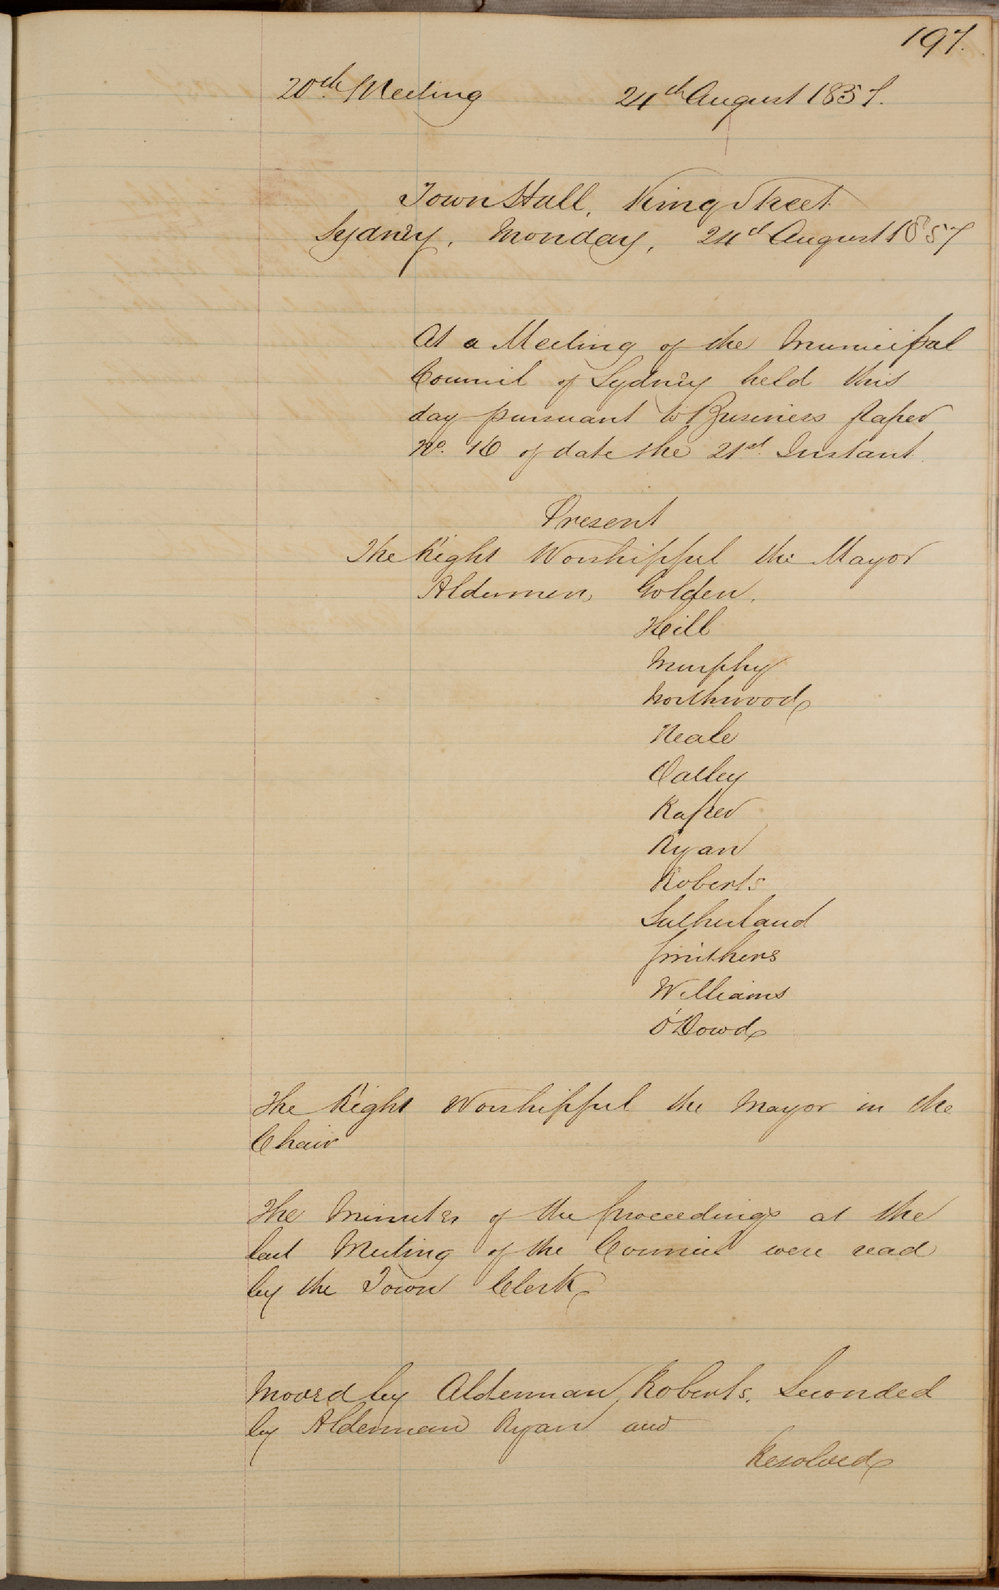 197.
20th Meeting 24th August 1857.
Town Hall, King Street
Sydney, Monday, 24th August 1857
At a Meeting of the Municipal
Council of Sydney held this
day pursuant to Business Paper
No. 16 of date the 21st Instant
Present
The Right Worshipful the Mayor
Aldermen Golden.
Hill
Murphy
Northwood
Neale
Oatley
Raper
Ryan
Roberts
Sutherland
Smithers
Williams
O'Dowd
The Right Worshipful the Mayor in the
Chair
The Minutes of the proceedings at the
last Meeting of the Council were read
by the Town Clerk
Moved by Alderman Roberts, Seconded
by Alderman Ryan and
Resolved